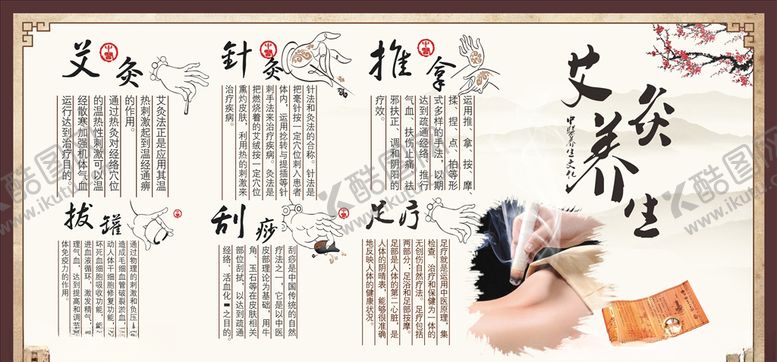 艾灸养生
中医养生文化
艾灸
中醫
艾灸法正是应用其温
热刺激起到温经通痹
的作用。
通过热灸对经络穴位
的温热性刺激可以温
经散寒加强机体气血
运行达到治疗目的。
針灸
中醫
针法和灸法的合称。针法是
把毫针按一定穴位刺入患者
体内，运用捻转与提插等针
刺手法来治疗疾病。灸法是
把燃烧着的艾绒按一定穴位
熏灼皮肤，利用热的刺激来
治疗疾病。
推拿
中醫
运用推、拿、按、摩、
揉、捏、点、拍等形
式多样的手法，以期
达到疏通经络、推行
气血、扶伤止痛、祛
邪扶正、调和阴阳的
疗效。
拔罐
通过物理的刺激和负压
造成毛细血管破裂淤血，
动人体干细胞修复功能，
坏死血细胞吸收功能，能
进血液循环，激发精气，
理气血，达到提高和调节
体免疫力的作用。
刮痧
中醫
刮痧是中国传统的自然
疗法之一，它是以中医
皮部理论为基础，用牛
角、玉石等在皮肤相关
部位刮拭，以达到疏通
经络、活血化 之目的。
足疗
足疗就是运用中医原理，集
检查、治疗和保健为一体的
无创伤自然疗法。足疗包括
两部分，足浴和足部按摩。
足部是人体的第二心脏，是
人体的阴晴表，能够很准确
地反映人体的健康状况。
酷图网
www.ikutu.com